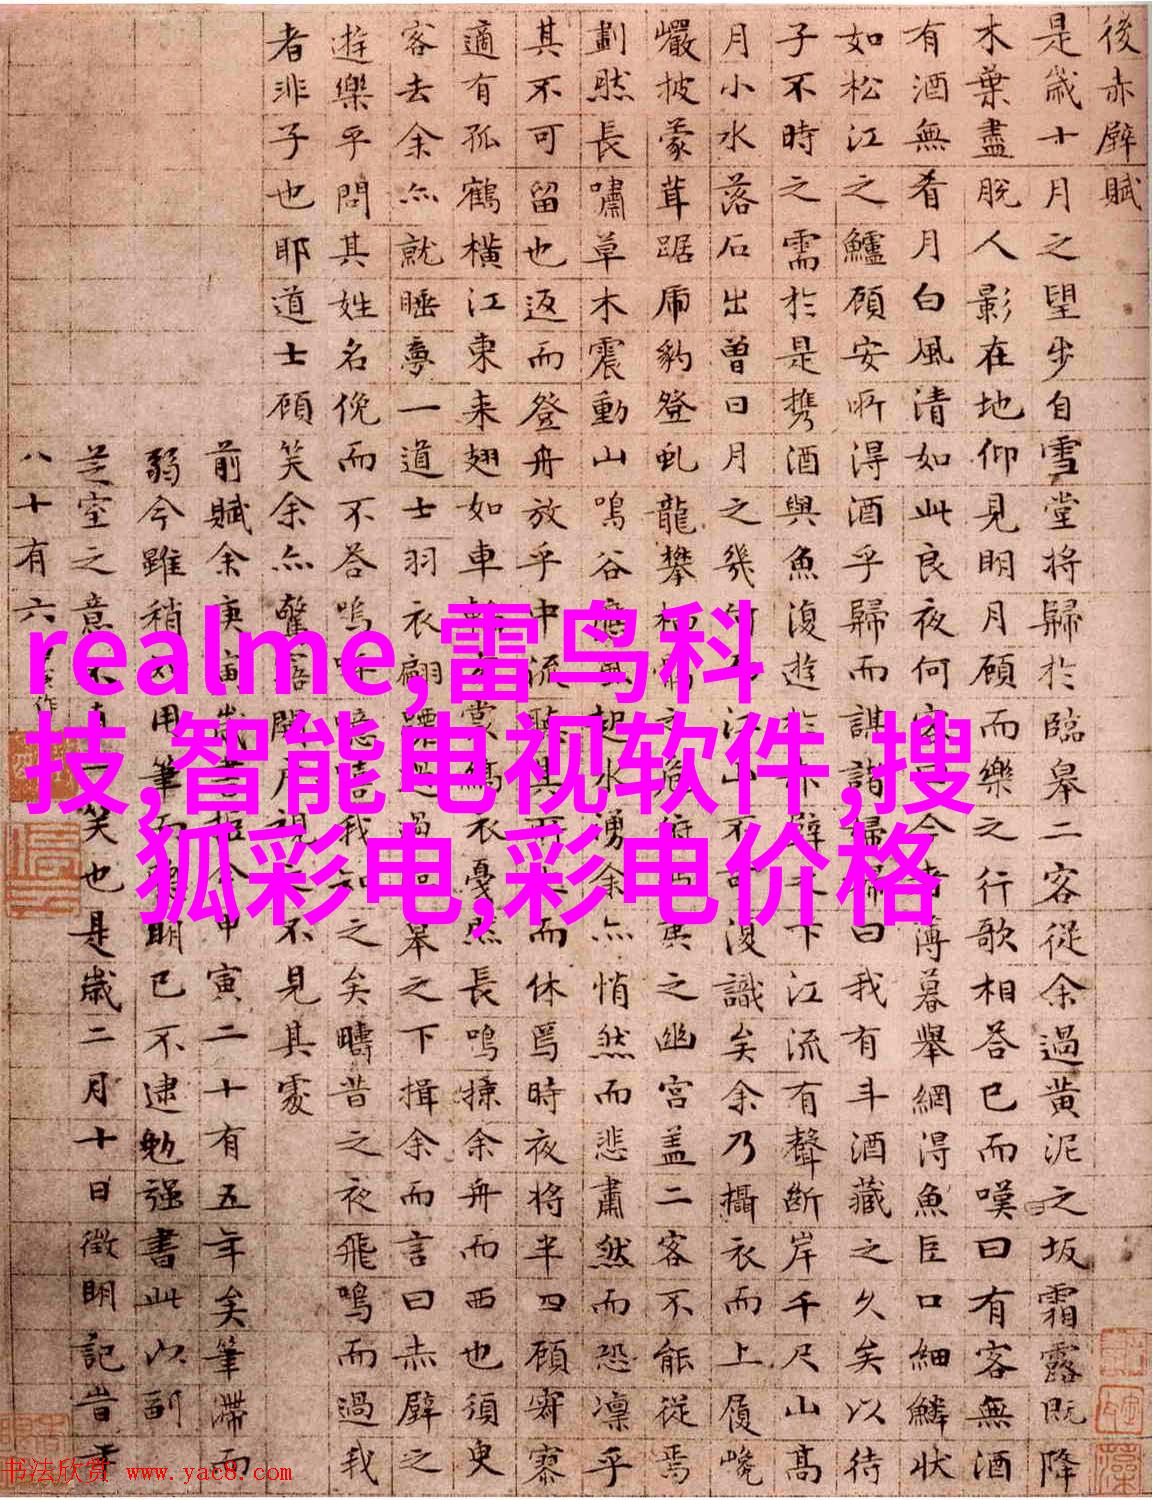 後赤壁賦
是歲十月之望步自雪堂將歸於臨皋二客從余過黃泥之坂霜露既降
木葉盡脫人影在地仰見明月顧而樂之行歌相答已而嘆曰有客無酒
有酒無肴月白風清如此良夜何客今者薄暮舉網得魚巨口細鱗狀
如松江之鱸顧安所得酒乎歸而謀諸婦婦曰我有斗酒藏之久矣以待
子不時之需於是携酒與魚復遊於赤壁之下江流有聲斷岸千尺山高
月小水落石出曾日月之幾何而江山不可復識矣余乃攝衣而上履巉
巖披蒙茸踞虎豹登虬龍攀栖鶻之危夷之幽宮盖二客不能從焉
劃然長嘯草木震動山鳴谷應風起水湧余亦悄然而悲肅然而恐凜乎
其不可留也返而登舟放乎中流聽其而休焉時夜將半四顧寂寥
適有孤鶴橫江東来翅如車裳縞衣戛然長鳴掠余舟而西也須臾
客去余亦就睡夢一道士羽衣翩躚過臨皋之下揖余而言曰赤壁之
遊樂乎問其姓名俛而不答嗚呼噫嘻我知之矣疇昔之夜飛鳴而過我
者非子也耶道士顧笑余亦驚寤開戶視之不見其處
前賦余庚寅歲書抵今甲寅二十有五年矣筆滯而
弱今雖稍用筆而明已不逮勉强書此以副
芝室之意不一笑也是歲二月十日徵明記昔年
八十有六作
realme,雷鸟科
技,智能电视软件,搜
狐彩电,彩电价格
书法欣赏 www.yac8.com